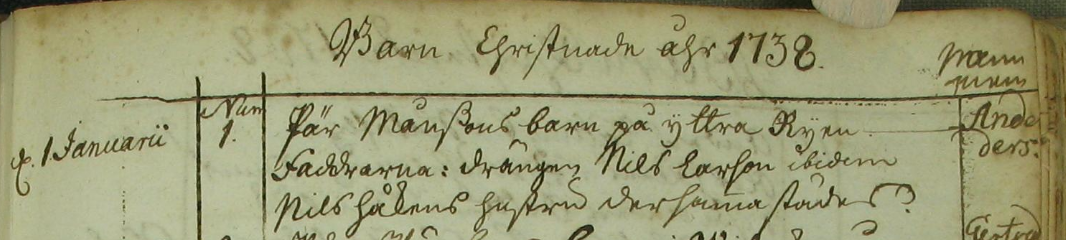 Barn Christnade åhr 1738.
Num
1.
d. 1 Januarii
Pär Månssons barn på yttra Ryen
Faddrarna: drängen Nils Larson ibidem
Nils Håkens hustru dersamastädes
An
ders.